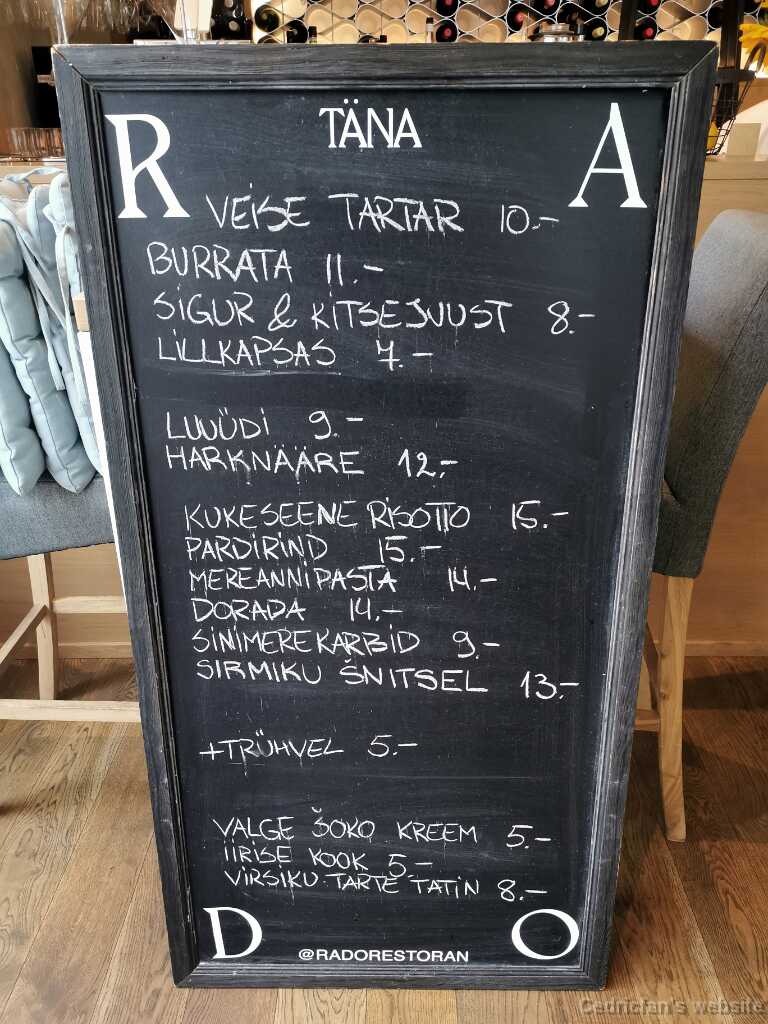 R TÄNA A
VEISE TARTAR 10.-
BURRATA 11.-
SIGUR & KITSEJUUST 8.-
LILLKAPSAS 7.-
LUUÜDI 9.-
HARKNÄÄRE 12.-
KUKESEENE RISOTTO 15.-
PARDIRIND 15.-
MEREANNIPASTA 14.-
DORADA 14.-
SINIMEREKARBID 9.-
SIRMIKU ŠNITSEL 13.-
+TRÜHVEL 5.-
VALGE ŠOKO KREEM 5.-
IIRISE KOOK 5.-
VIRSIKU TARTE TATIN 8.-
D @RADORESTORAN O
Cedricfan's website